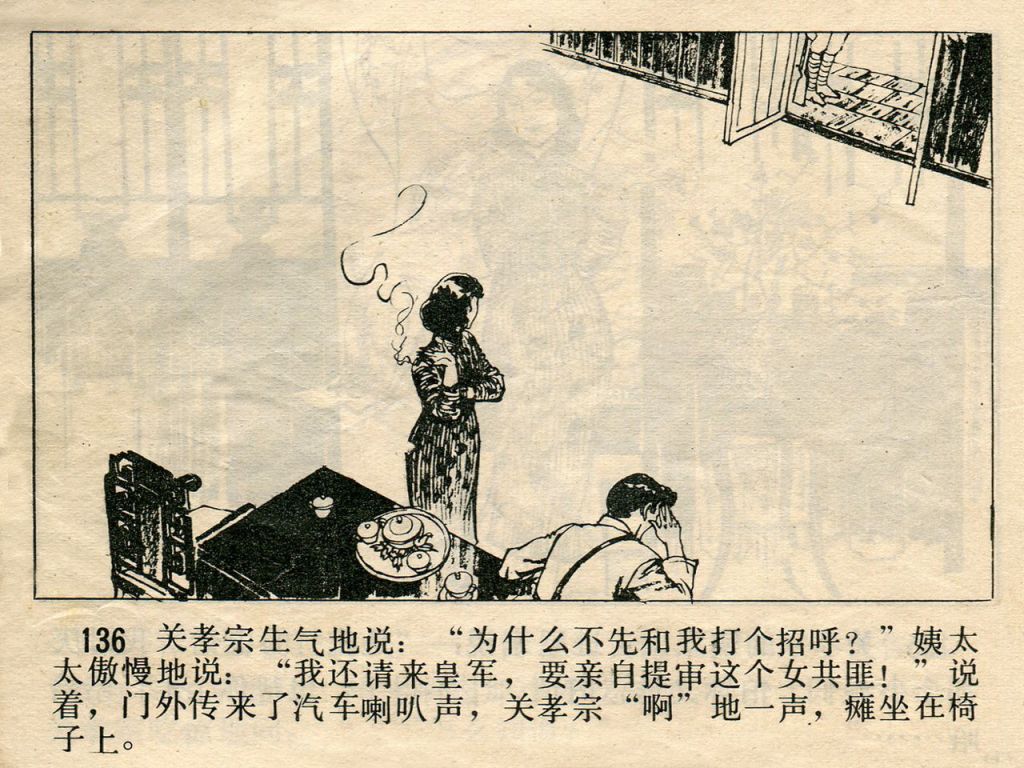 136 关孝宗生气地说：“为什么不先和我打个招呼？”姨太
太傲慢地说：“我还请来皇军，要亲自提审这个女共匪！”说
着，门外传来了汽车喇叭声，关孝宗“啊”地一声，瘫坐在椅
子上。